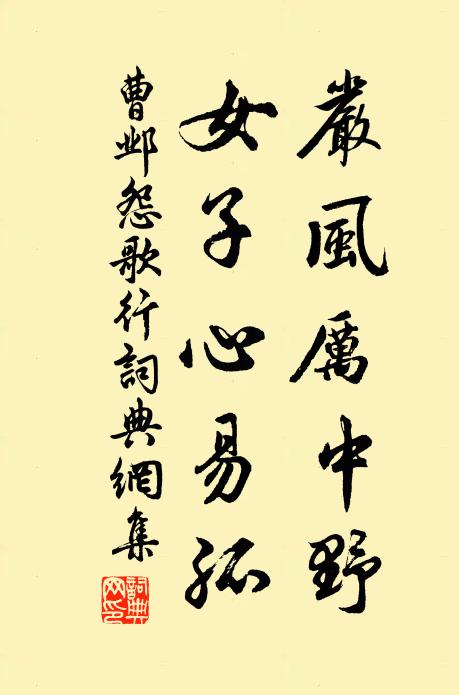 嚴風厲中野
女子心易孤
曹邺怨歌行詞典網集
詞典
网印